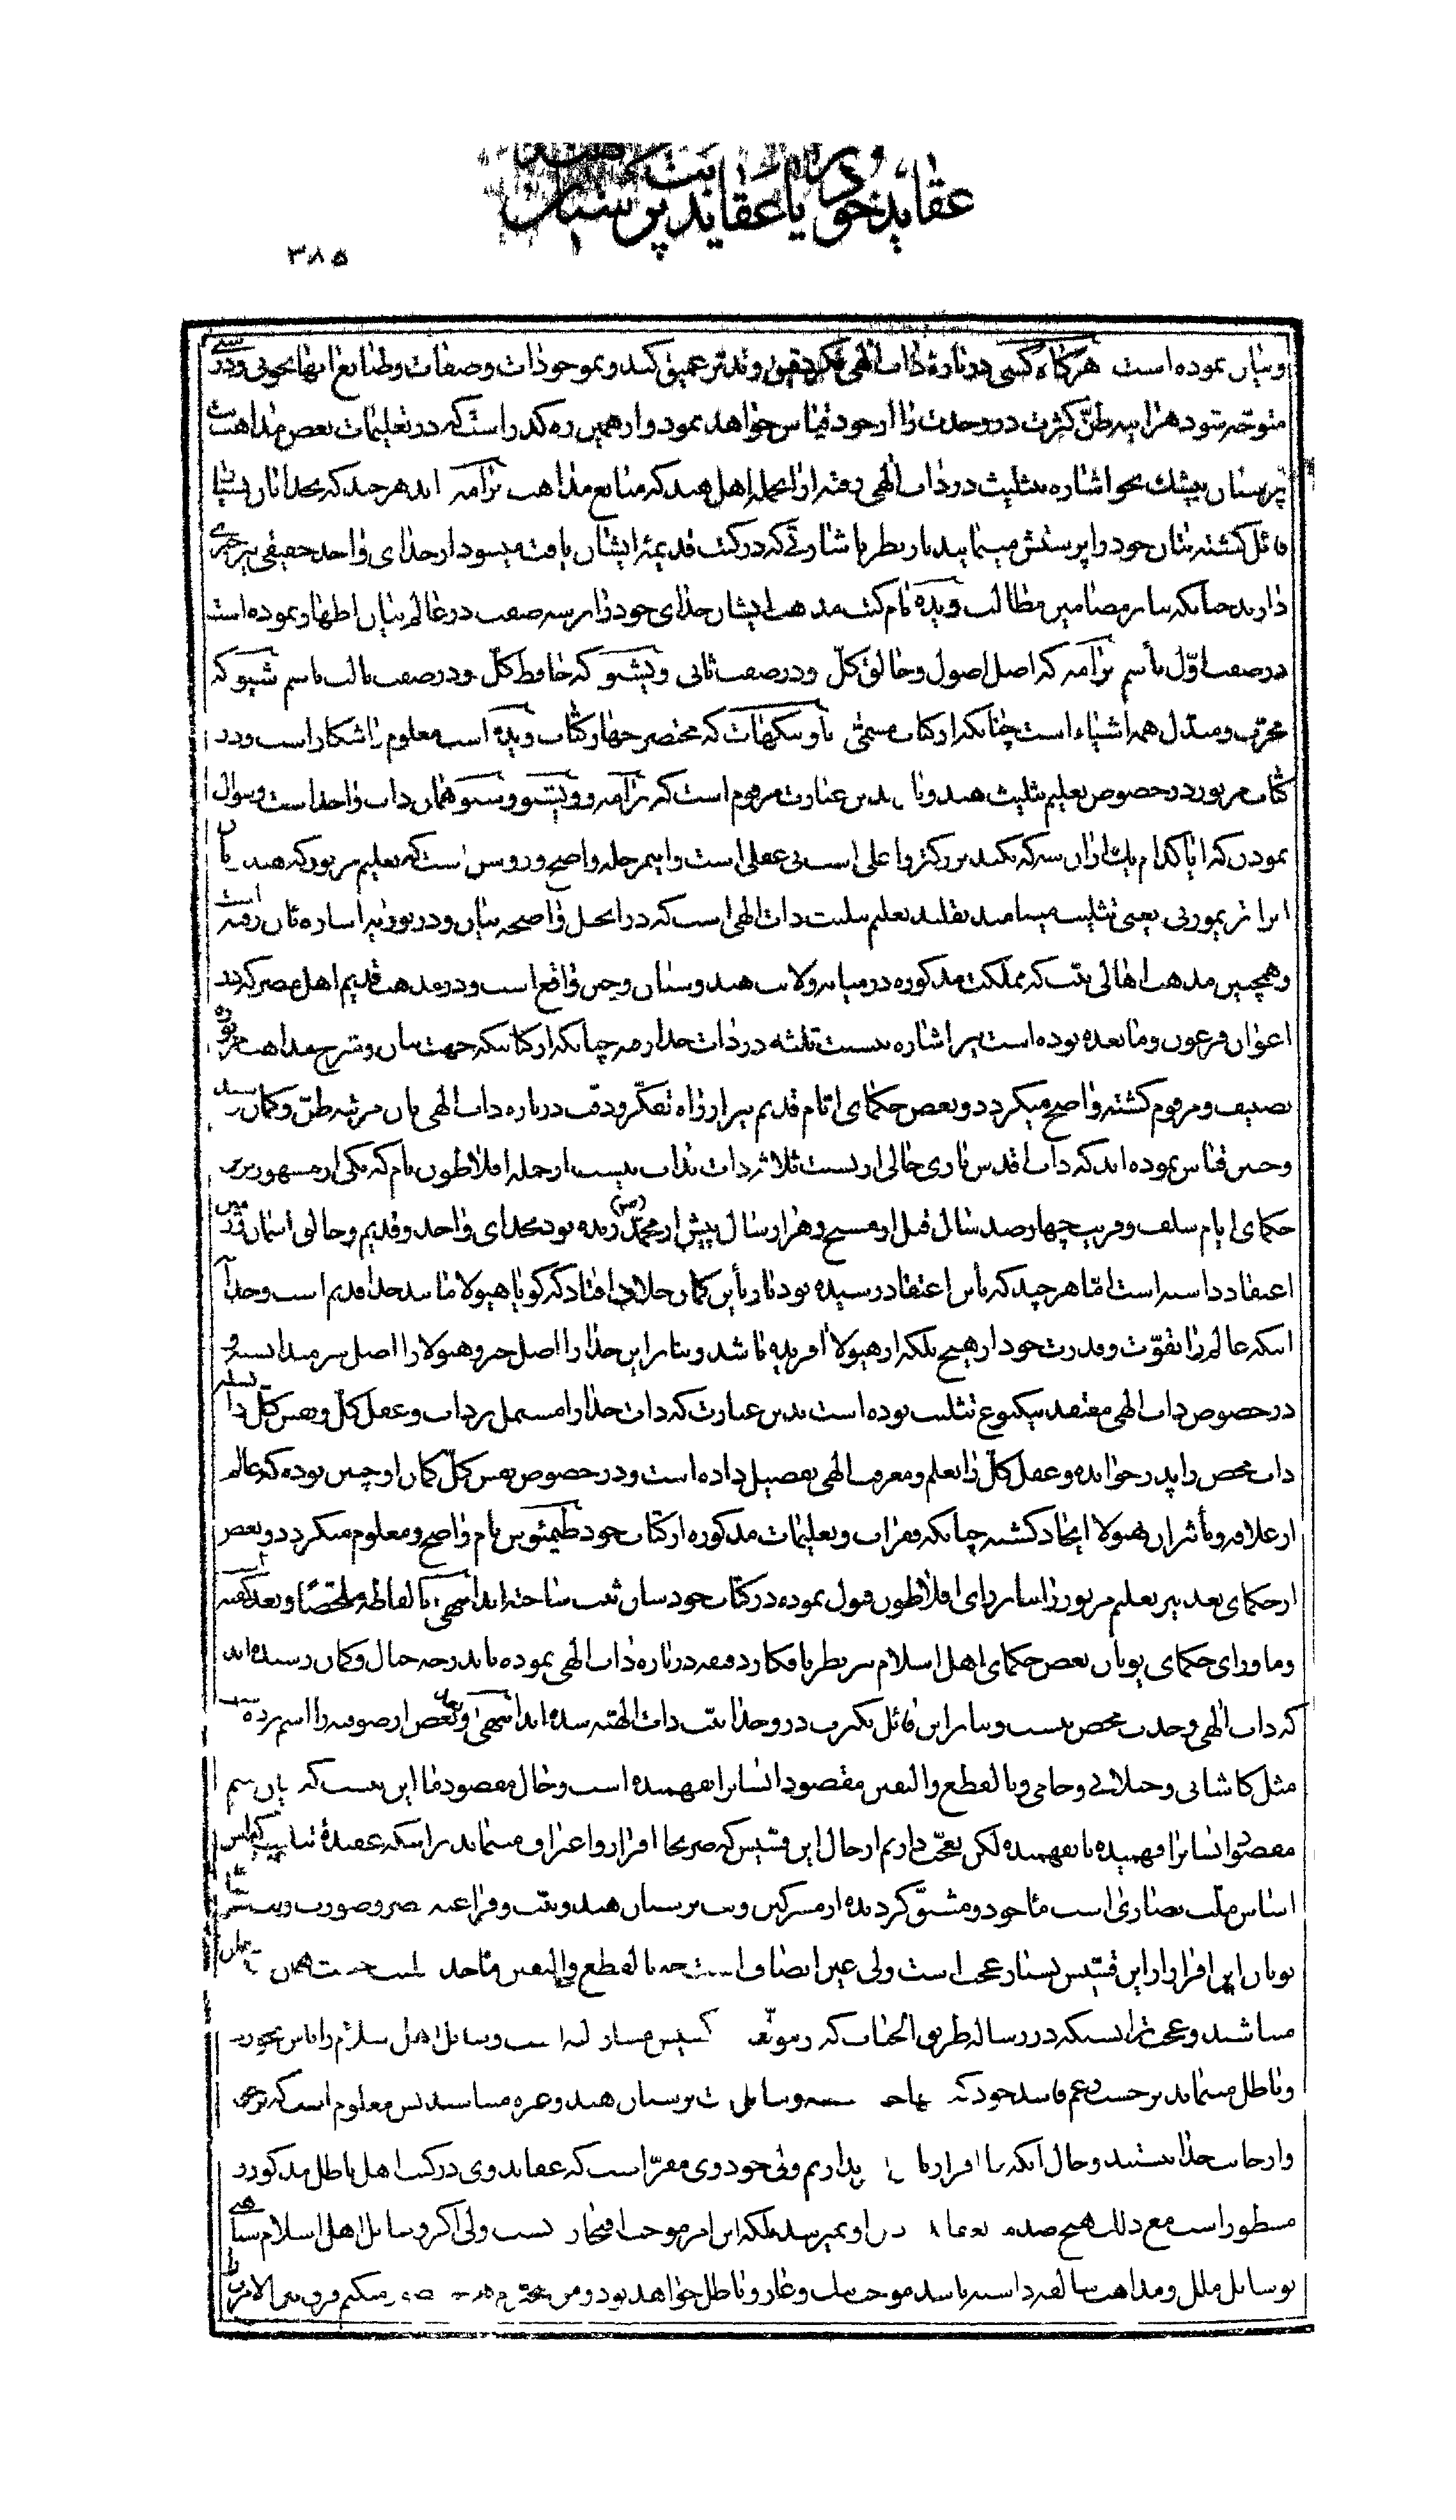 عقاید خود را با عقاید بت پرستان
۳۸۵
و بیان نموده است هرگاه کسی درباره ذات الهی فکر دقیق و تدبر عمیق کند و بموجودات و صفات و طبایع آنها بخوبی وارسی
متوجه شود هر آینه ظن کثرت در وحدت را از خود قیاس خواهد نمود و از همین رهگذر است که در تعلیمات بعض مذاهب بت
پرستان بیشک بنحو اشاره بتثلیث در ذات الهی رفته از آنجمله اهل هند که متابع مذاهب برامه اند هر چند که بخدایان بسیار
قائل گشته بتان خود را پرستش مینمایند باز بنظر باشاراتی که در کتب قدیمه ایشان یافت میشود از خدای واحد حقیقی نیز خبری
دارند چنانکه بنابر مضامین مطالب ویده نام کتب مذهب ایشان خدای خود را بر سه صفت در عالم بیان اظهار نموده است
در صفت اول باسم برامه که اصل اصول و خالق کل و در صفت ثانی ویشنو که حافظ کل و در صفت ثالث باسم شیو که
مخرب و مبدل همه اشیاء است چنانکه از کتاب مسمی باوپنکهات که مختصر چهار کتاب ویده است معلوم و آشکار است و در
کتاب مزبور در خصوص تعلیم تثلیث هند و بدین عبارت مرقوم است که برامه و ویشنو و شیو همان ذات واحد است و سؤال
نمودن که آیا کدام یک از آن سه که بکند بزرگتر و اعلی است بی عقلی است و این مرحله واضح و روشن است که تعلیم مزبور که هندیان
آنرا تریمورتی یعنی تثلیث مینامند تقلید تعلیم تثلیث ذات الهی است که در انجیل واضحه بیان و در توریة اشاره بآن رفته است
و همچنین مذهب اهالی تبت که مملکت مذکوره در میانه ولایت هندوستان و چین واقع است و در مذهب قدیم اهل مصر که در
اعوان فرعون و مابعده بوده است نیز اشاره بنسبت ثلثه در ذات خدا رفته چنانکه از کتابیکه جهت بیان و شرح مذاهب مزبوره
تصنیف و مرقوم گشته واضح میگردد و بعض حکمای ایام قدیم نیز از راه تفکر و دقت درباره ذات الهی بآن مرتبه ظن و گمان رسیده
و چنین قیاس نموده اند که ذات اقدس باری خالی از نسبت ثلاثه ذات بذات نیست از جمله افلاطون نام که یکی از مشهورترین
حکمای ایام سلف و قریب چهار صد سال قبل از مسیح و هزار سال پیش از محمد (ص) زنده بود بخدای واحد و قدیم و خالق آسمان و زمین
اعتقاد داشته است اما هر چند که باین اعتقاد رسیده بود باز باین گمان خلاف افتاد که گویا هیولا مانند خدا قدیم است و خدا
اینکه عالم را بقوت و قدرت خود از هیچ بلکه از هیولا آفریده باشد و بنابراین خدا را اصل خیر و هیولا را اصل شر میدانسته و
در خصوص ذات الهی معتقد بیکنوع تثلیث بوده است بدین عبارت که ذات خدا را مشتمل بر ذات و عقل کل و نفس کل دانسته
ذات محض را پدر خوانده و عقل کل را بعلم و معرفت الهی تفصیل داده است و در خصوص نفس کل گمان او چنین بوده که عالم
از علاقه و تأثر آن بهیولا ایجاد گشته چنانکه فقرات و تعلیمات مذکوره از کتاب خود طیمئوس نام واضح و معلوم میگردد و بعض
از حکمای بعد نیز تعلیم مزبور را بنابر رای افلاطون قبول نموده در کتاب خود شان ثبت ساخته اند انتهی بالفاظه ملخصا و بعد گفته است
و ماورای حکمای یونان بعض حکمای اهل اسلام نیز بنظر بافکار دقیقه درباره ذات الهی نموده باید درجه خیال و گمان رسیده اند
که ذات الهی وحدت محض نیست و بنابر این قائل بکثرت در وحدانیت ذات الهیه شده اند انتهی و بعد بعض از صوفیه را اسم برده است
مثل کاشانی و جیلانی و جامی و بالقطع والیقین مقصود ایشانرا نفهمیده است و حال مقصود ما این نیست که بیان کنیم
مقصود ایشانرا فهمیده یا نفهمیده لکن تعجب داریم از حال این قسیس که صریحا اقرار و اعتراف مینماید بر اینکه عقیده تثلیث که اس
اساس ملت نصاری است مأخوذ و مشتق گردیده از مشرکین و بت پرستان هند و تبت و فراعنه مصر
یونان این اقرار از این قسیس بسیار عجب است ولی عین انصاف است چه بالقطع والیقین مأخذ تثلیث همان
میباشند و عجب تر آنست که در رساله طریق الحیات که وسایل اهل اسلام را باین نحو رد
و باطل مینماید بر حسب زعم فاسد خود که وسایل بت پرستان هند و غیره میباشند پس معلوم است که نزد وی
و از جانب خدا نیستند و حال آنکه ما اقرار نداریم ولی خود وی مقر است که عقاید وی در کتب اهل باطل مذکور و
مسطور است مع ذلک هیچ صدمه بعقاید او نمیرسد بلکه این امر موجب افتخار است ولی اگر وسایل اهل اسلام شباهتی
بوسایل ملل و مذاهب سالفه داشته باشد موجب سلب و عار و باطل خواهد بود